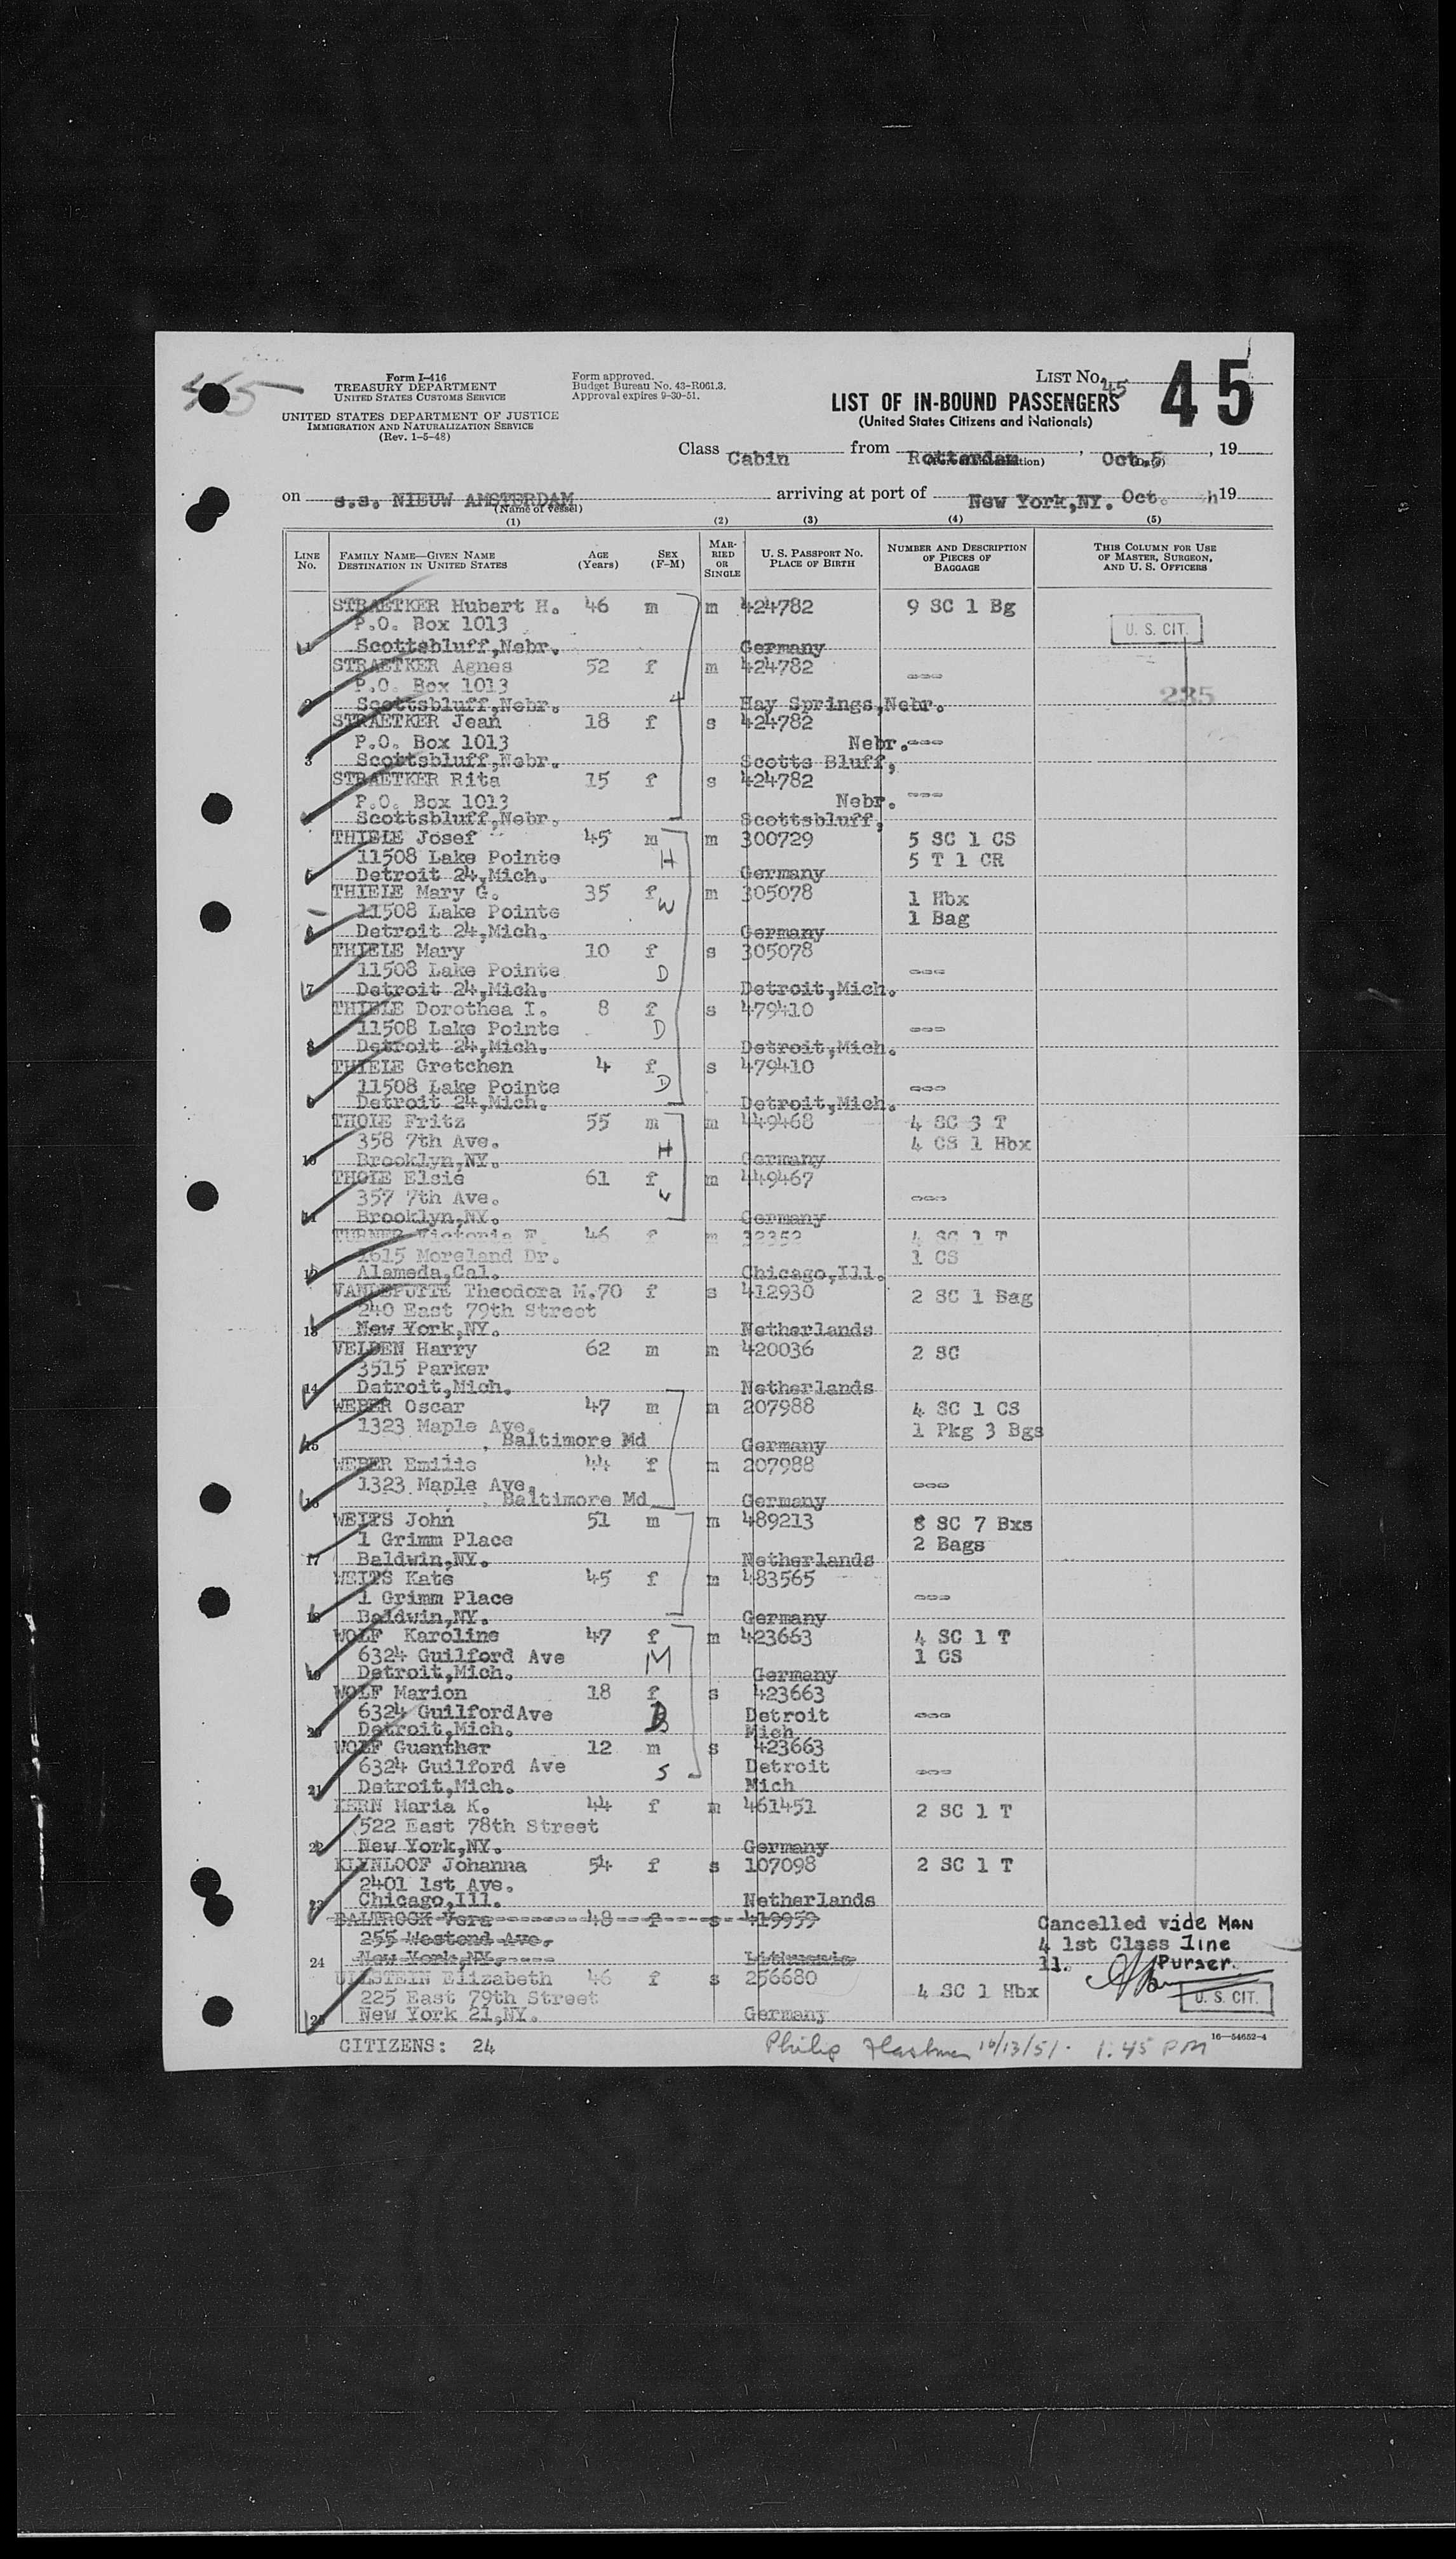 Form I-416
TREASURY DEPARTMENT
UNITED STATES CUSTOMS SERVICE
UNITED STATES DEPARTMENT OF JUSTICE
IMMIGRATION AND NATURALIZATION SERVICE
(Rev. 1-5-48)
Form approved.
Budget Bureau No. 43-R061.3.
Approval expires 9-30-51.
LIST No. 45
45
LIST OF IN-BOUND PASSENGERS
(United States Citizens and Nationals)
Class Cabin from Rotterdam, Oct.5, 19
on s.s. NIEUW AMSTERDAM arriving at port of New York,NY. Oct. h19
(Name of vessel)
(1) (2) (3) (4) (5)
LINE No. FAMILY NAME—GIVEN NAME DESTINATION IN UNITED STATES AGE (Years) SEX (F-M) MARRIED OR SINGLE U. S. PASSPORT NO. PLACE OF BIRTH NUMBER AND DESCRIPTION OF PIECES OF BAGGAGE THIS COLUMN FOR USE OF MASTER, SURGEON, AND U. S. OFFICERS
STRAETKER Hubert H. 46 m m 424782 9 SC 1 Bg
P.O. Box 1013 U. S. CIT.
1 Scottsbluff,Nebr. Germany
STRAETKER Agnes 52 f m 424782 ---
P.O. Box 1013 235
2 Scottsbluff,Nebr. Hay Springs,Nebr.
STRAETKER Jean 18 f s 424782
P.O. Box 1013 Nebr. ---
3 Scottsbluff,Nebr. Scotts Bluff,
STRAETKER Rita 15 f s 424782
P.O. Box 1013 Nebr. ---
Scottsbluff,Nebr. Scottsbluff,
THIELE Josef 45 m m 300729 5 SC 1 CS
11508 Lake Pointe H 5 T 1 CR
5 Detroit 24,Mich. Germany
THIELE Mary G. 35 f m 305078 1 Hbx
11508 Lake Pointe W 1 Bag
6 Detroit 24,Mich. Germany
THIELE Mary 10 f s 305078
11508 Lake Pointe D ---
7 Detroit 24,Mich. Detroit,Mich.
THIELE Dorothea I. 8 f s 479410
11508 Lake Pointe D ---
8 Detroit 24,Mich. Detroit,Mich.
THIELE Gretchen 4 f s 479410
11508 Lake Pointe D ---
9 Detroit 24,Mich. Detroit,Mich.
THOLE Fritz 55 m m 449468 4 SC 3 T
358 7th Ave. H 4 CS 1 Hbx
10 Brooklyn,NY. Germany
THOLE Elsie 61 f m 449467
357 7th Ave. W ---
11 Brooklyn,NY. Germany
TURNER Victoria F. 46 f m 32352 4 SC 1 T
1615 Moreland Dr. 1 CS
12 Alameda,Cal. Chicago,Ill.
VANDEPUTTE Theodora M. 70 f s 412930 2 SC 1 Bag
240 East 79th Street
13 New York,NY. Netherlands
VELDEN Harry 62 m m 420036 2 SC
3515 Parker
14 Detroit,Mich. Netherlands
WEBER Oscar 47 m m 207988 4 SC 1 CS
1323 Maple Ave. 1 Pkg 3 Bgs
15 , Baltimore Md Germany
WEBER Emilie 44 f m 207988
1323 Maple Ave. ---
16 , Baltimore Md Germany
WEITS John 51 m m 489213 8 SC 7 Bxs
1 Grimm Place 2 Bags
17 Baldwin,NY. Netherlands
WEITS Kate 45 f m 483565
1 Grimm Place ---
18 Baldwin,NY. Germany
WOLF Karoline 47 f m 423663 4 SC 1 T
6324 Guilford Ave M 1 CS
19 Detroit,Mich. Germany
WOLF Marion 18 f s 423663
6324 GuilfordAve D Detroit ---
20 Detroit,Mich. Mich
WOLF Guenther 12 m s 423663
6324 Guilford Ave S Detroit ---
21 Detroit,Mich. Mich
KERN Maria K. 44 f m 461451 2 SC 1 T
522 East 78th Street
22 New York,NY. Germany
KLYNLOOF Johanna 54 f s 107098 2 SC 1 T
2401 1st Ave.
23 Chicago,Ill. Netherlands
BALTROCK Vera 48 f s 419959 Cancelled vide MAN
255 Westend Ave. 4 1st Class line
24 New York,NY. Lithuania 11. Purser.
ULLSTEIN Elizabeth 46 f s 256680
225 East 79th Street 4 SC 1 Hbx U. S. CIT.
25 New York 21,NY. Germany
CITIZENS: 24 Philip 10/13/51. 1:45 PM
16—54652-4